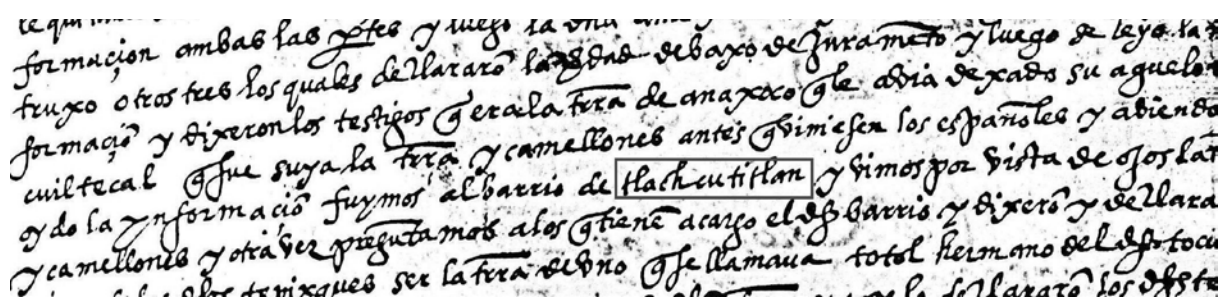 formaçion ambas las ptes y luego la
truxo otros tres los quales decllararõ la verdad debaxo de Juramẽto y luego se leyo la
formaçiõ y dixeron los testigos q̃ era la trra de anaxoco q̃ le avia dexado su aguelo
cuiltecal q̃ fue suya la trra y camellones antes q̃ viniesen los españoles y abiendo
oydo la ynformaçiõ fuymos al barrio de tlachcutitlan y vimos por vista de ojos la
y camellones y otra vez preguntamos a los q̃ tienẽ a cargo el dho barrio y dixerõ y decllara
ser la trra de vno q̃ se llamaua totol hermano del dho